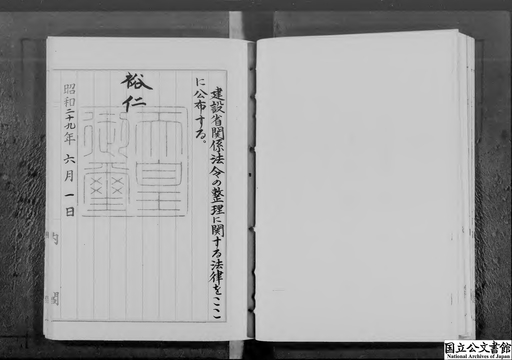 建設省関係法令の整理に関する法律をここ
に公布する。
裕仁
天皇
御璽
昭和二十九年 六月 一日
内閣
国立公文書館
National Archives of Japan